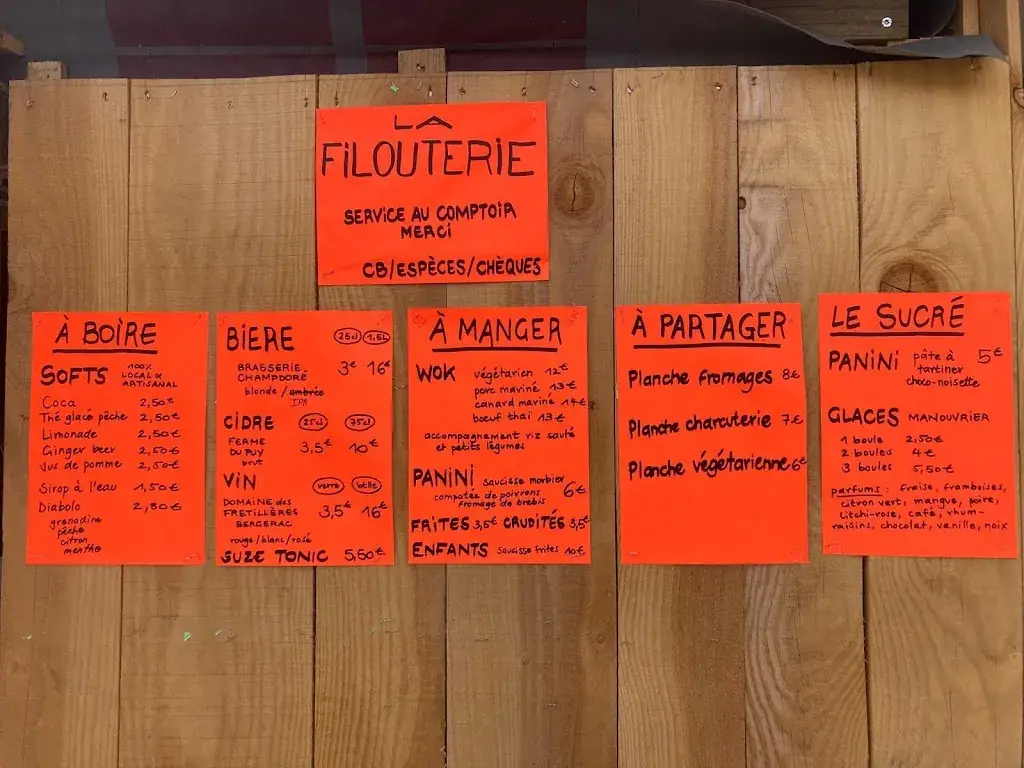 LA
FILOUTERIE
SERVICE AU COMPTOIR
MERCI
CB/ESPÈCES/CHÈQUES
À BOIRE
SOFTS 100% LOCAL & ARTISANAL
Coca 2,50€
Thé glacé pêche 2,50€
Limonade 2,50€
Ginger beer 2,50€
Jus de pomme 2,50€
Sirop à l'eau 1,50€
Diabolo 2,80€
grenadine
pêche
citron
menthe
BIERE 25cl 1,5L
BRASSERIE CHAMPDORÉ 3€ 16€
blonde / ambrée
IPA
CIDRE 25cl 75cl
FERME DU PUY 3,5€ 10€
brut
VIN verre btlle
DOMAINE des FRETILLÈRES 3,5€ 16€
BERGERAC
rouge/blanc/rosé
SUZE TONIC 5,50€
À MANGER
WOK végétarien 12€
porc mariné 13€
canard mariné 14€
bœuf thaï 13€
accompagnement riz sauté
et petits légumes
PANINI saucisse morbier 6€
compotée de poivrons
fromage de brebis
FRITES 3,5€ CRUDITÉS 3,5€
ENFANTS saucisse frites 10€
À PARTAGER
Planche fromages 8€
Planche charcuterie 7€
Planche végétarienne 6€
LE SUCRÉ
PANINI pâte à 5€
tartiner
choco-noisette
GLACES MANOUVRIER
1 boule 2,50€
2 boules 4€
3 boules 5,50€
parfums : fraise, framboises,
citron vert, mangue, poire,
litchi-rose, café, rhum-
raisins, chocolat, vanille, noix